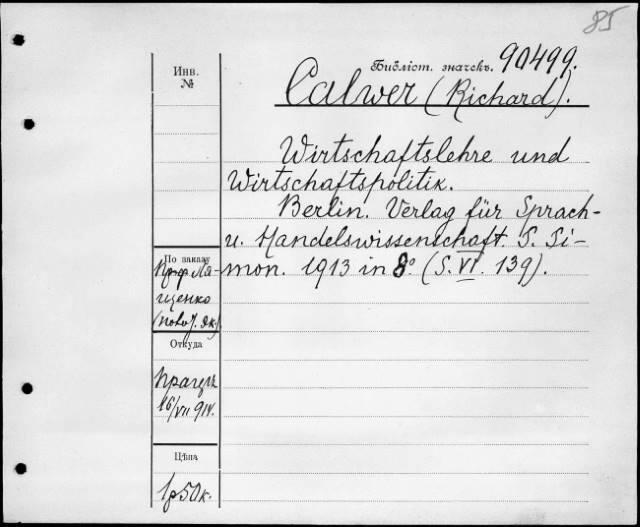 85
Инв.
№
Библіот. значекъ. 90499.
Calwer (Richard).
Wirtschaftslehre und
Wirtschaftspolitik.
Berlin. Verlag für Sprach-
u. Handelswissenschaft. S. Si-
mon. 1913 in 8° (S. VI. 139).
По заказу
Проф. Ля-
щенко
Откуда
16/VII 914.
Цѣна
1р 50к.